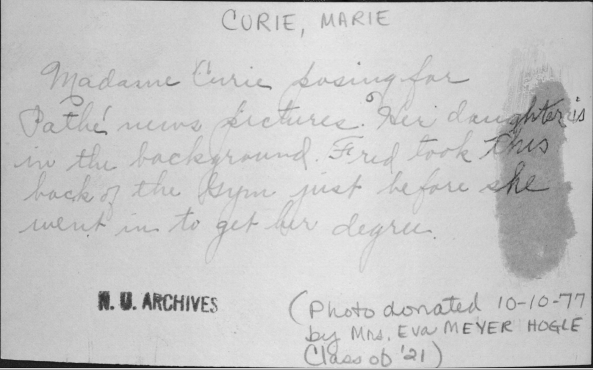 CURIE, MARIE
Madame Curie posing for
Pathé news pictures. Her daughter is
in the background. Fred took this
back of the Gym just before she
went in to get her degree.
N. U. ARCHIVES
(Photo donated 10-10-77
by Mrs. Eva MEYER HOGLE
Class of '21)